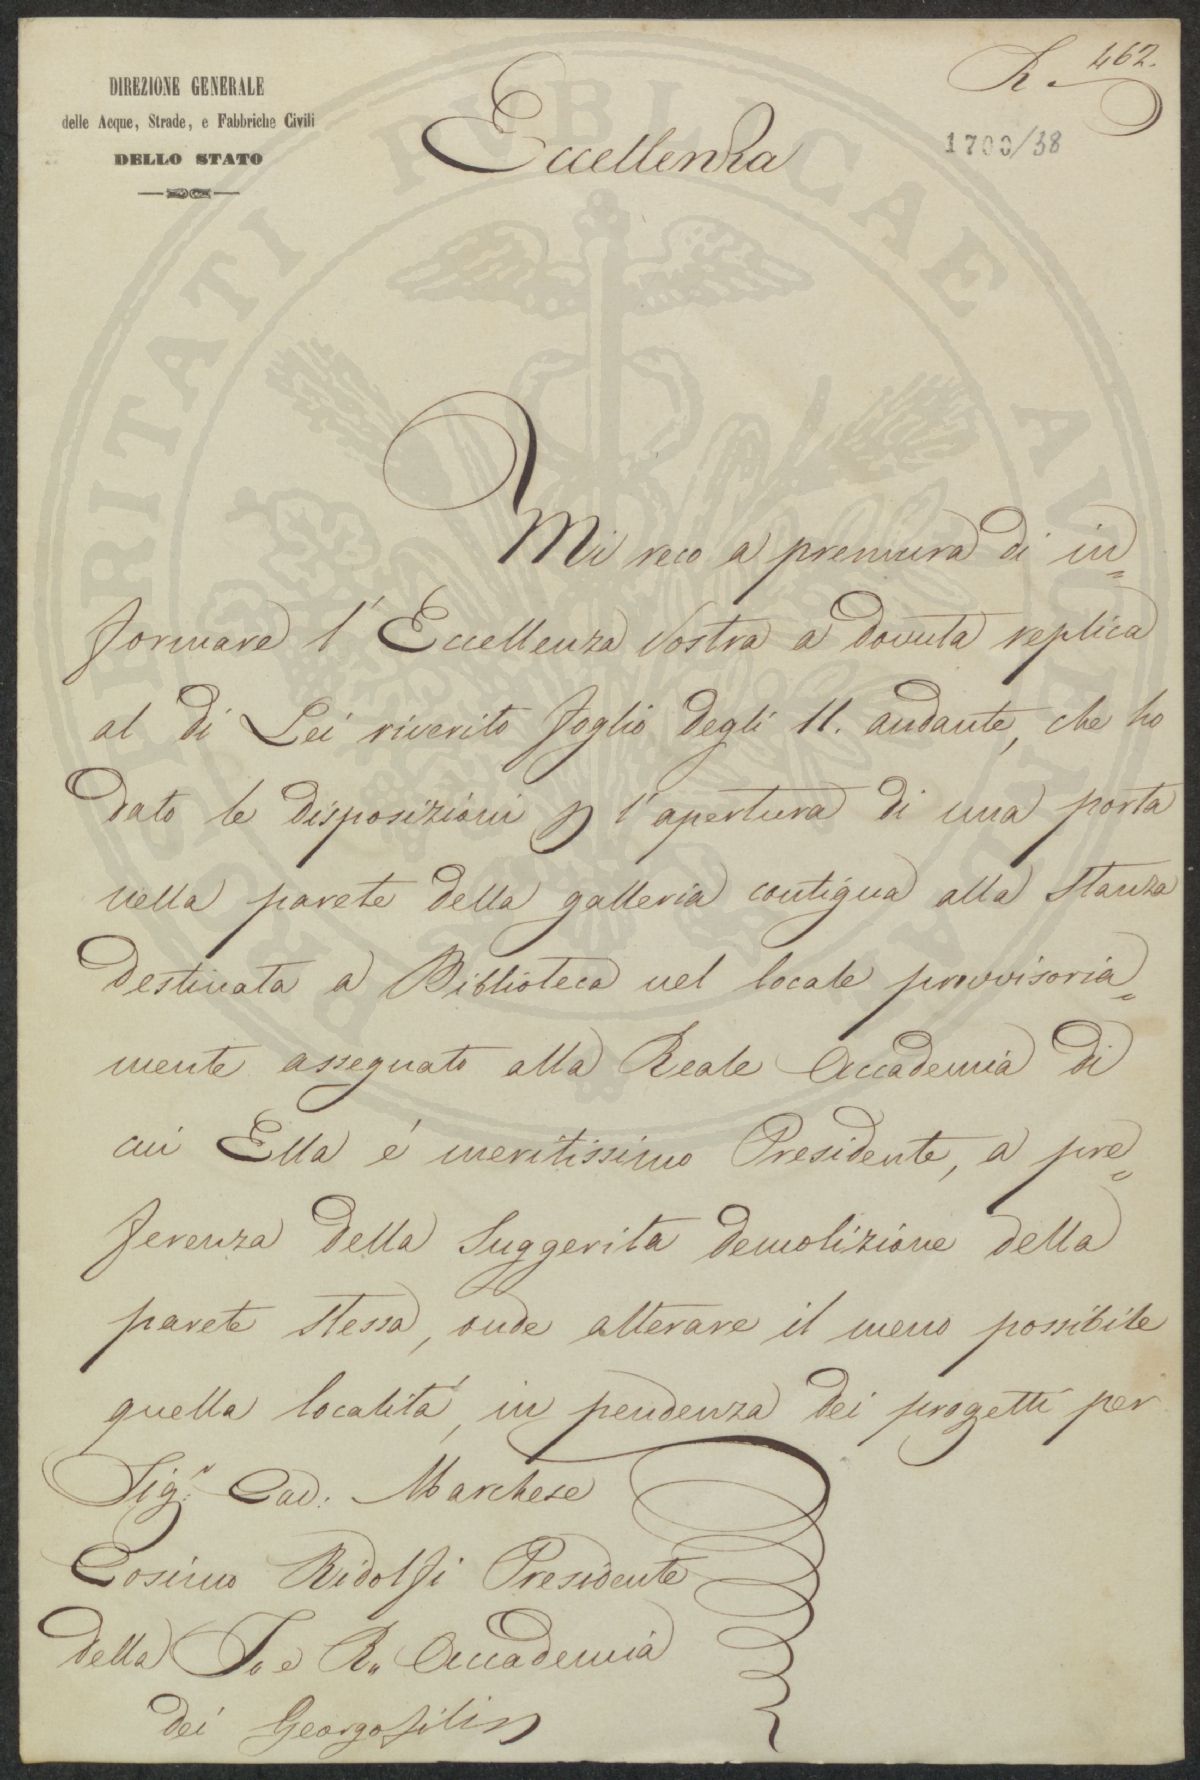 DIREZIONE GENERALE
delle Acque, Strade, e Fabbriche Civili
DELLO STATO
462.
1700/38
Eccellenza
Mi reco a premura di in=
formare l'Eccellenza Vostra a dovuta replica
al di Lei riverito foglio degli 11. andante, che ho
dato le disposizioni p l'apertura di una porta
nella parete della galleria contigua alla Stanza
destinata a Biblioteca nel locale provvisoria=
mente assegnato alla Reale Accademia di
cui Ella é meritissimo Presidente, a pre=
ferenza della Suggerita demolizione della
parete stessa, onde alterare il meno possibile
quella località, in pendenza dei progetti per
Sig.r Cav. Marchese
Cosimo Ridolfi Presidente
della I. e R. Accademia
dei Georgofili
PROSPERITATI PUBLICAE AUGENDAE